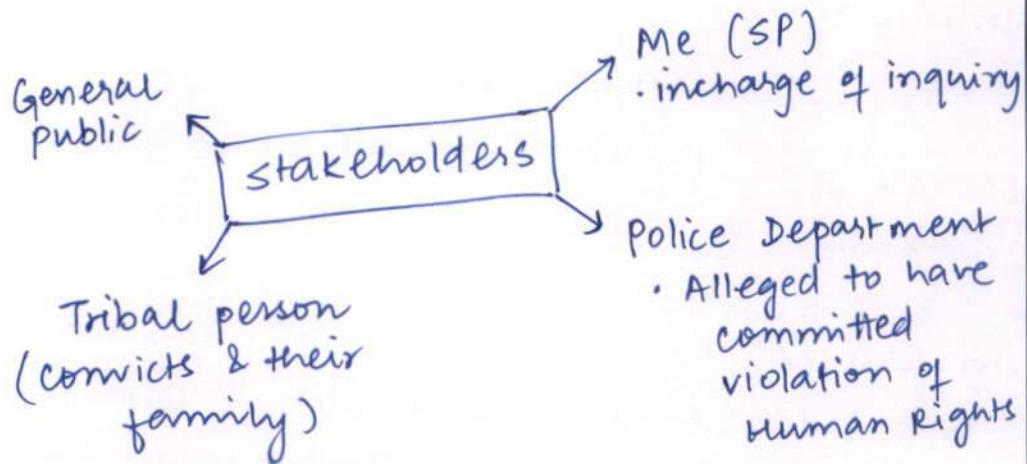 General
public
stakeholders
Me (SP)
· incharge of inquiry
Police Department
· Alleged to have
committed
violation of
Human Rights
Tribal person
(convicts & their
family)